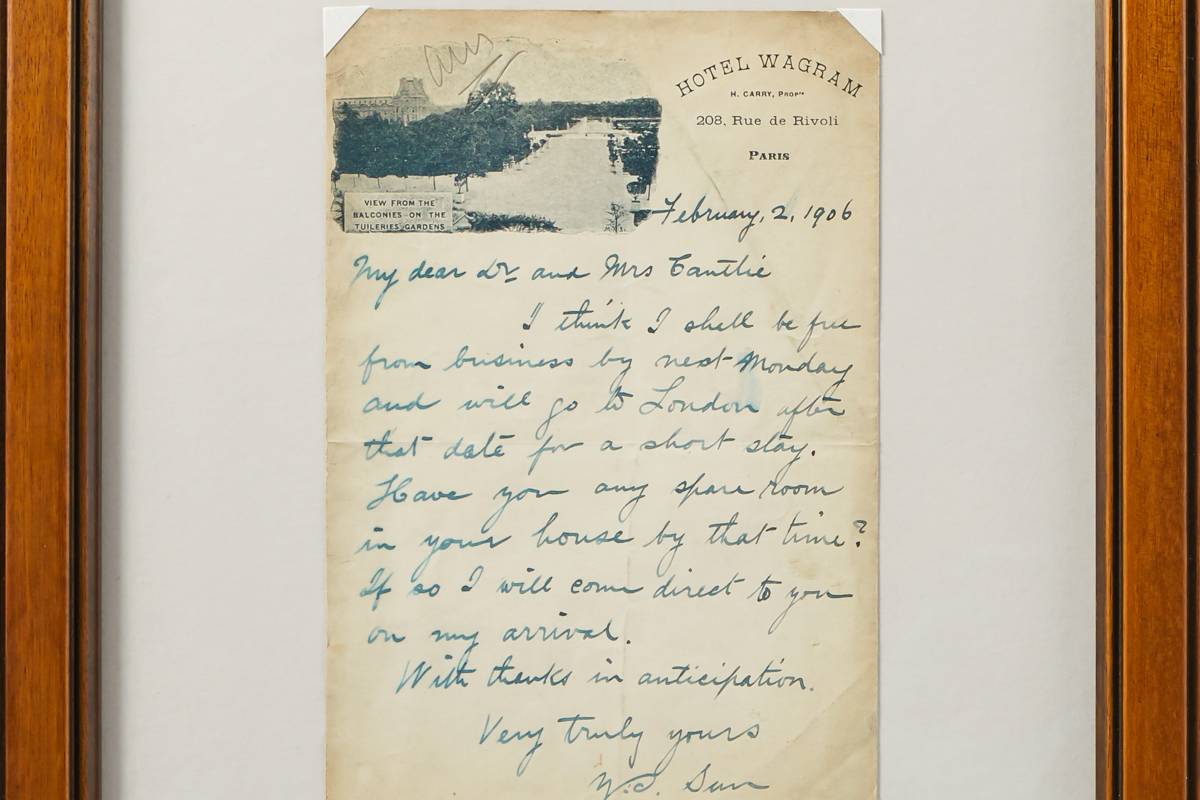 ans
HOTEL WAGRAM
H. CARRY, Propʳ
208, Rue de Rivoli
PARIS
VIEW FROM THE
BALCONIES ON THE
TUILERIES GARDENS
February, 2, 1906
My dear Dr and Mrs Cantlie
I think I shall be free
from business by next Monday
and will go to London after
that date for a short stay.
Have you any spare room
in your house by that time?
If so I will come direct to you
on my arrival.
With thanks in anticipation.
Very truly yours
Y.S. Sun